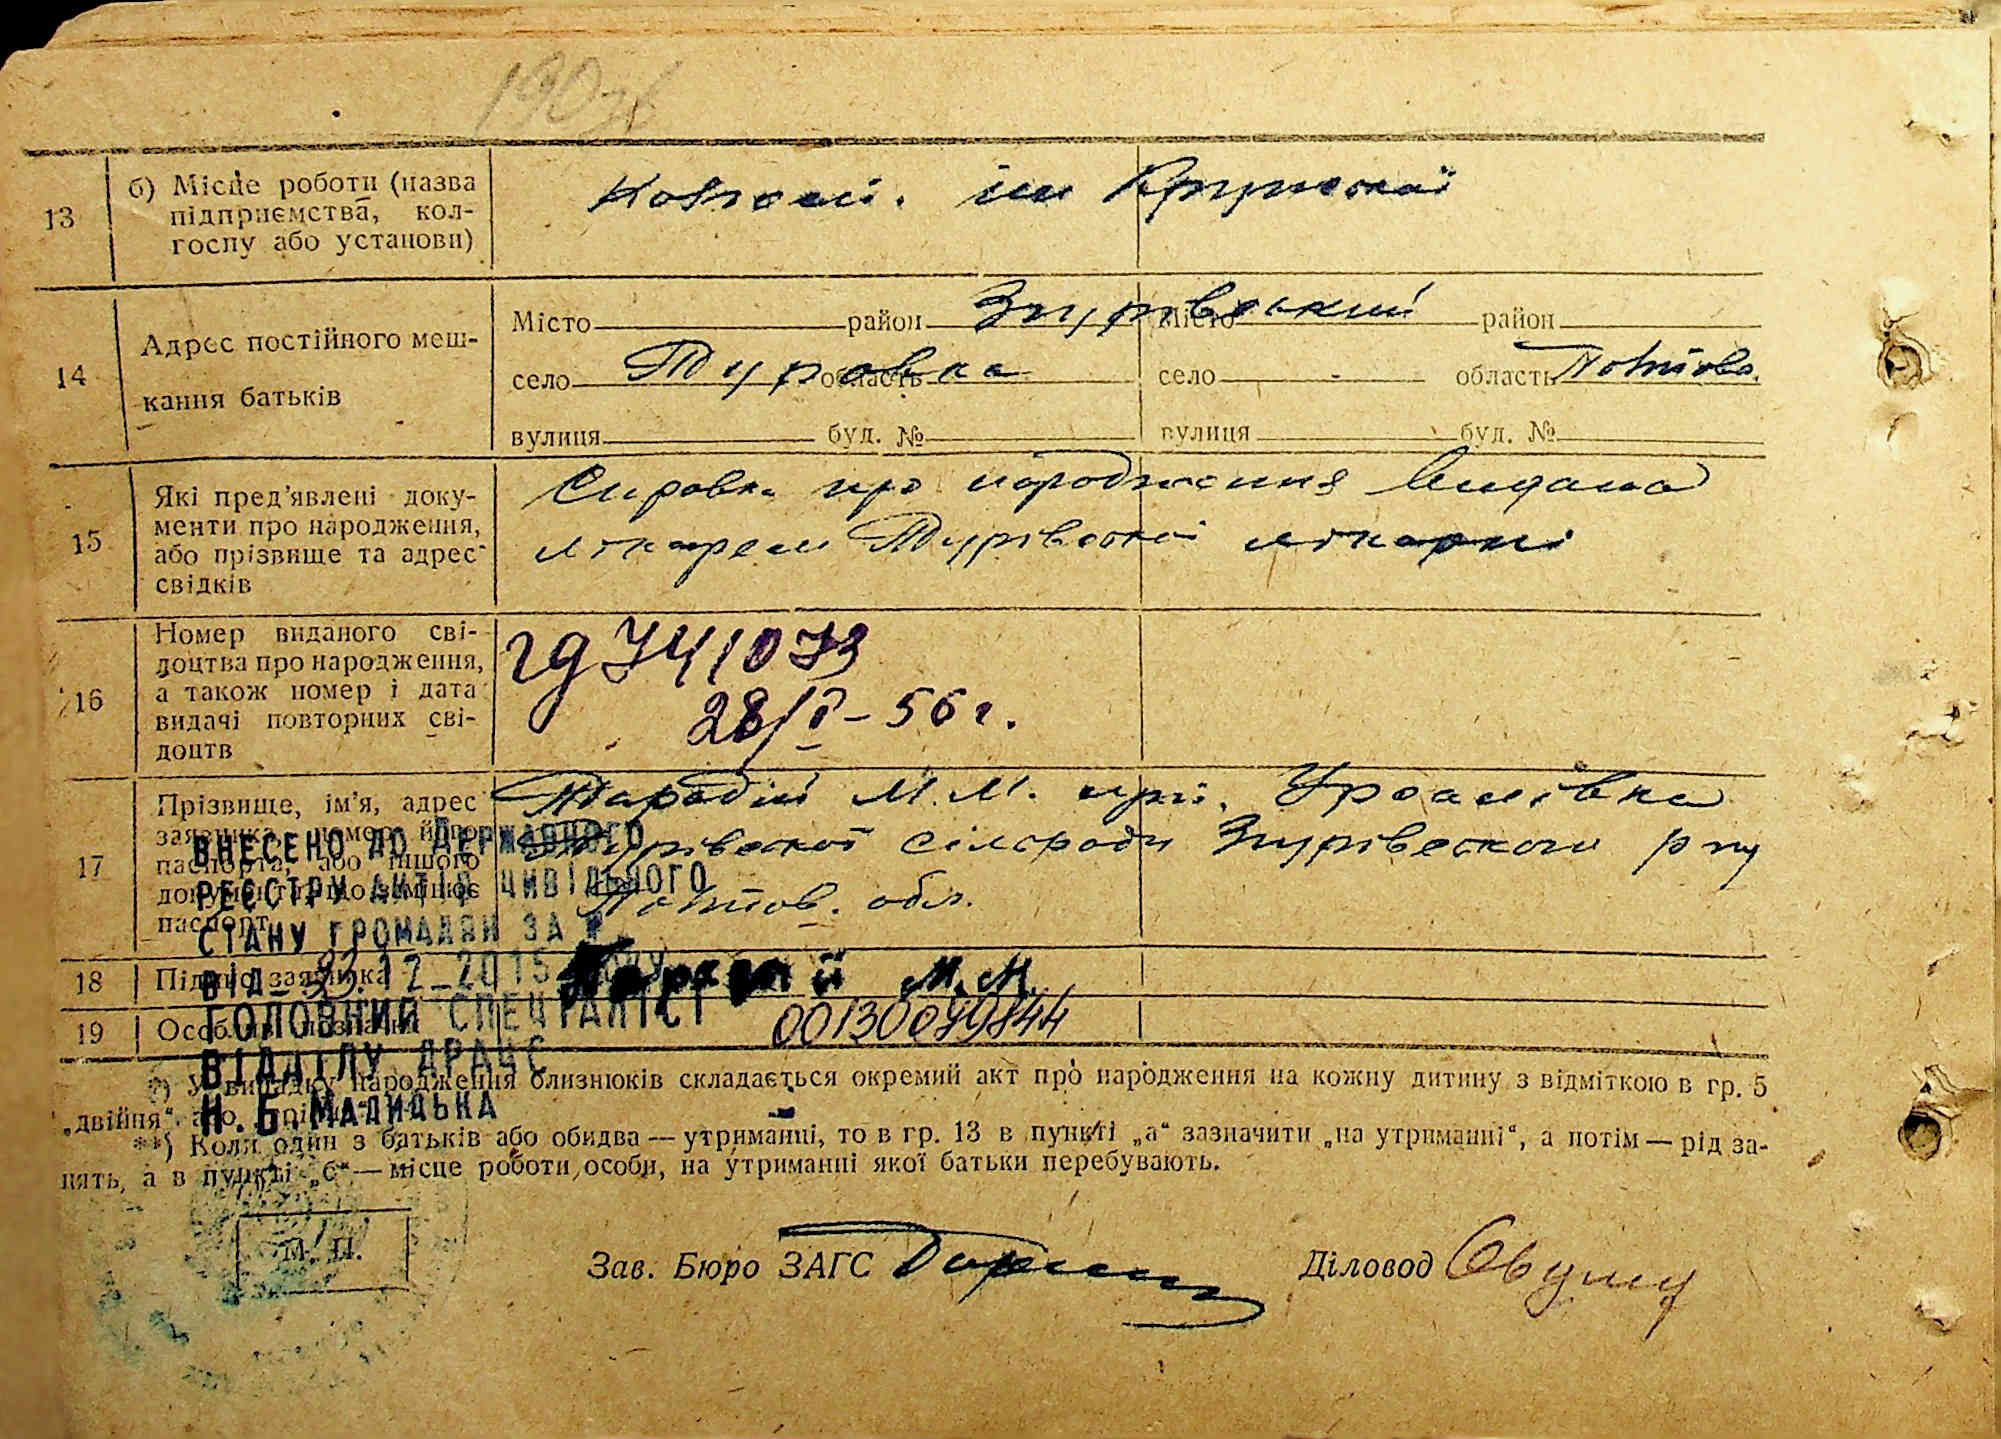 13
б) Місце роботи (назва
підприємства, кол-
госпу або установи)
Колгосп. ім Крупської
14
Адрес постійного меш-
кання батьків
Місто район Згурівський Місто район
село Турівка область село - область Полтавс.
вулиця буд. № вулиця буд. №
15
Які пред’явлені доку-
менти про народження,
або прізвище та адрес
свідків
Справка про народження видана
лікарем Турівської лікарні
16
Номер виданого сві-
доцтва про народження,
а також номер і дата
видачі повторних сві-
доцтв
741073
28/I - 56 г.
17
Прізвище, ім’я, адрес
заявника, номер його
паспорта, або іншого
документа, що замінює
паспорт
М.М. прж.
Турівської сілсради Згурівського р-ну
Полтав. обл.
18
Підпис заявника
М.М.
19
00130099844
ВНЕСЕНО ДО ДЕРЖАВНОГО
РЕЄСТРУ АКТІВ ЦИВІЛЬНОГО
СТАНУ ГРОМАДЯН ЗА №
ВІД 12 2015 РОКУ
ГОЛОВНИЙ СПЕЦІАЛІСТ
ВІДДІЛУ ДРАЦС
Н.Б. МАЛИЦЬКА
*) У випадку народження близнюків складається окремий акт про народження на кожну дитину з відміткою в гр. 5
„двійня“ або
**) Коли один з батьків або обидва — утриманці, то в гр. 13 в пункті „а“ зазначити „на утриманні“, а потім — рід за-
нять, а в пункті „б“ — місце роботи особи, на утриманні якої батьки перебувають.
М. П.
Зав. Бюро ЗАГС
Діловод